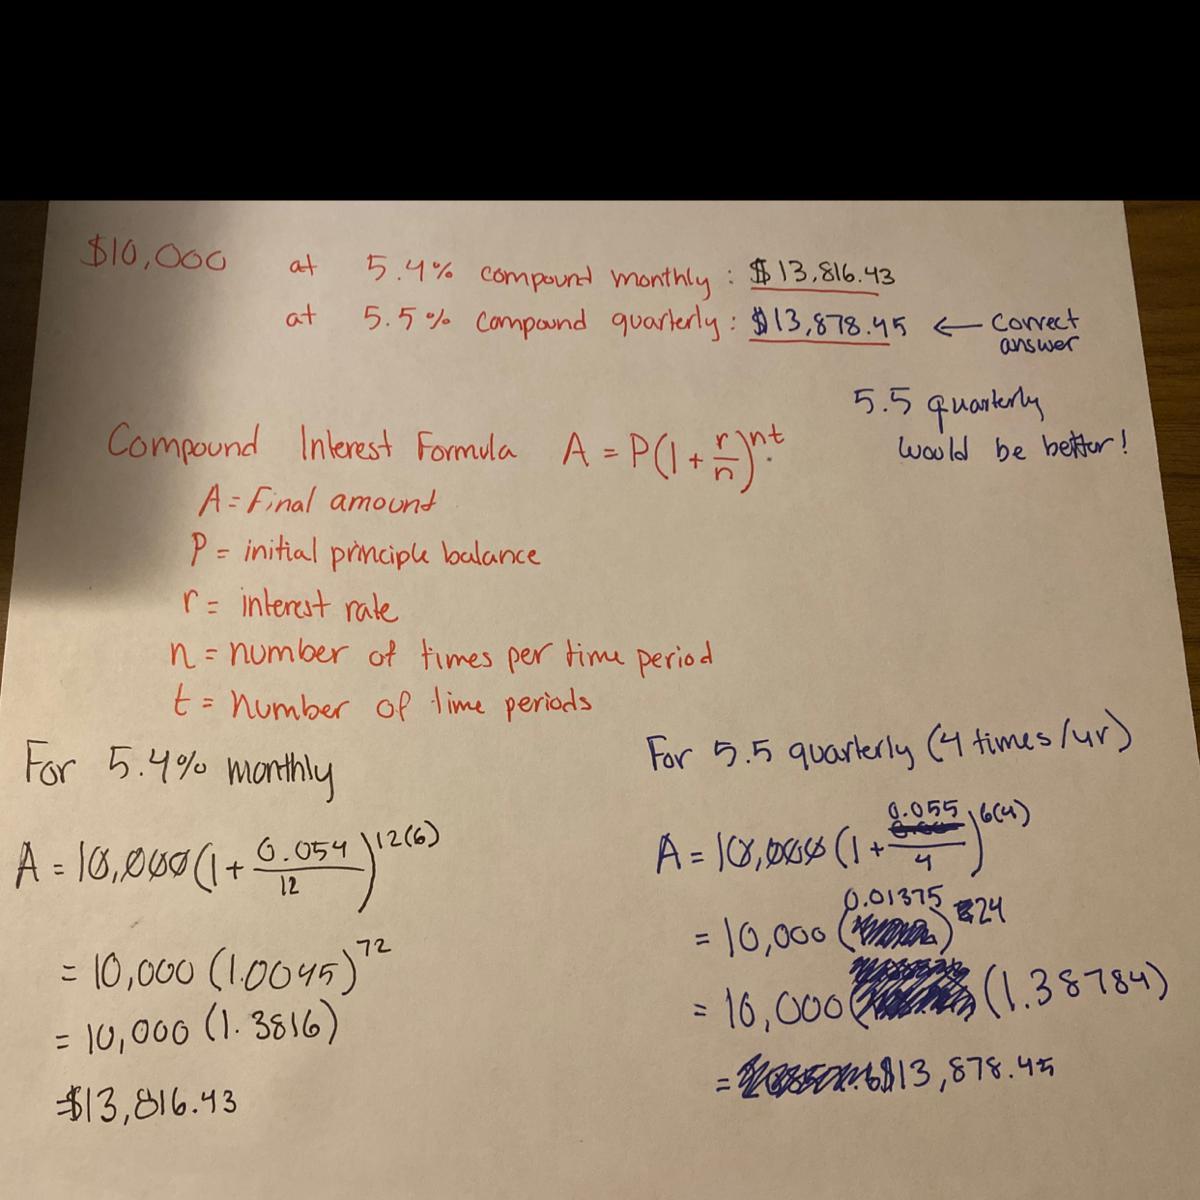 $10,000 at 5.4% compound monthly : $13,816.43
at 5.5% compound quarterly : $13,878.45 ← correct answer
5.5 quarterly
would be better!
Compound Interest Formula A = P(1 + r/n)^nt
A = Final amount
P = initial principle balance
r = interest rate
n = number of times per time period
t = number of time periods
For 5.4% monthly
A = 10,000(1 + 0.054/12)^12(6)
= 10,000 (1.0045)^72
= 10,000 (1.3816)
$13,816.43
For 5.5 quarterly (4 times/yr)
A = 10,000 (1 + 0.055/4)^6(4)
= 10,000 (0.01375)^24
= 10,000 (1.38784)
= $13,878.45